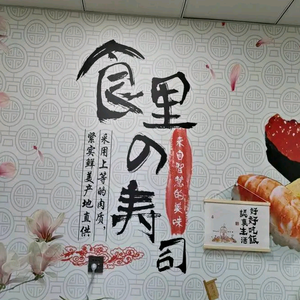 食里の寿司
来自智慧的美味
采用上等的肉质，
紧实鲜美产地直供
好好吃饭
認真生活